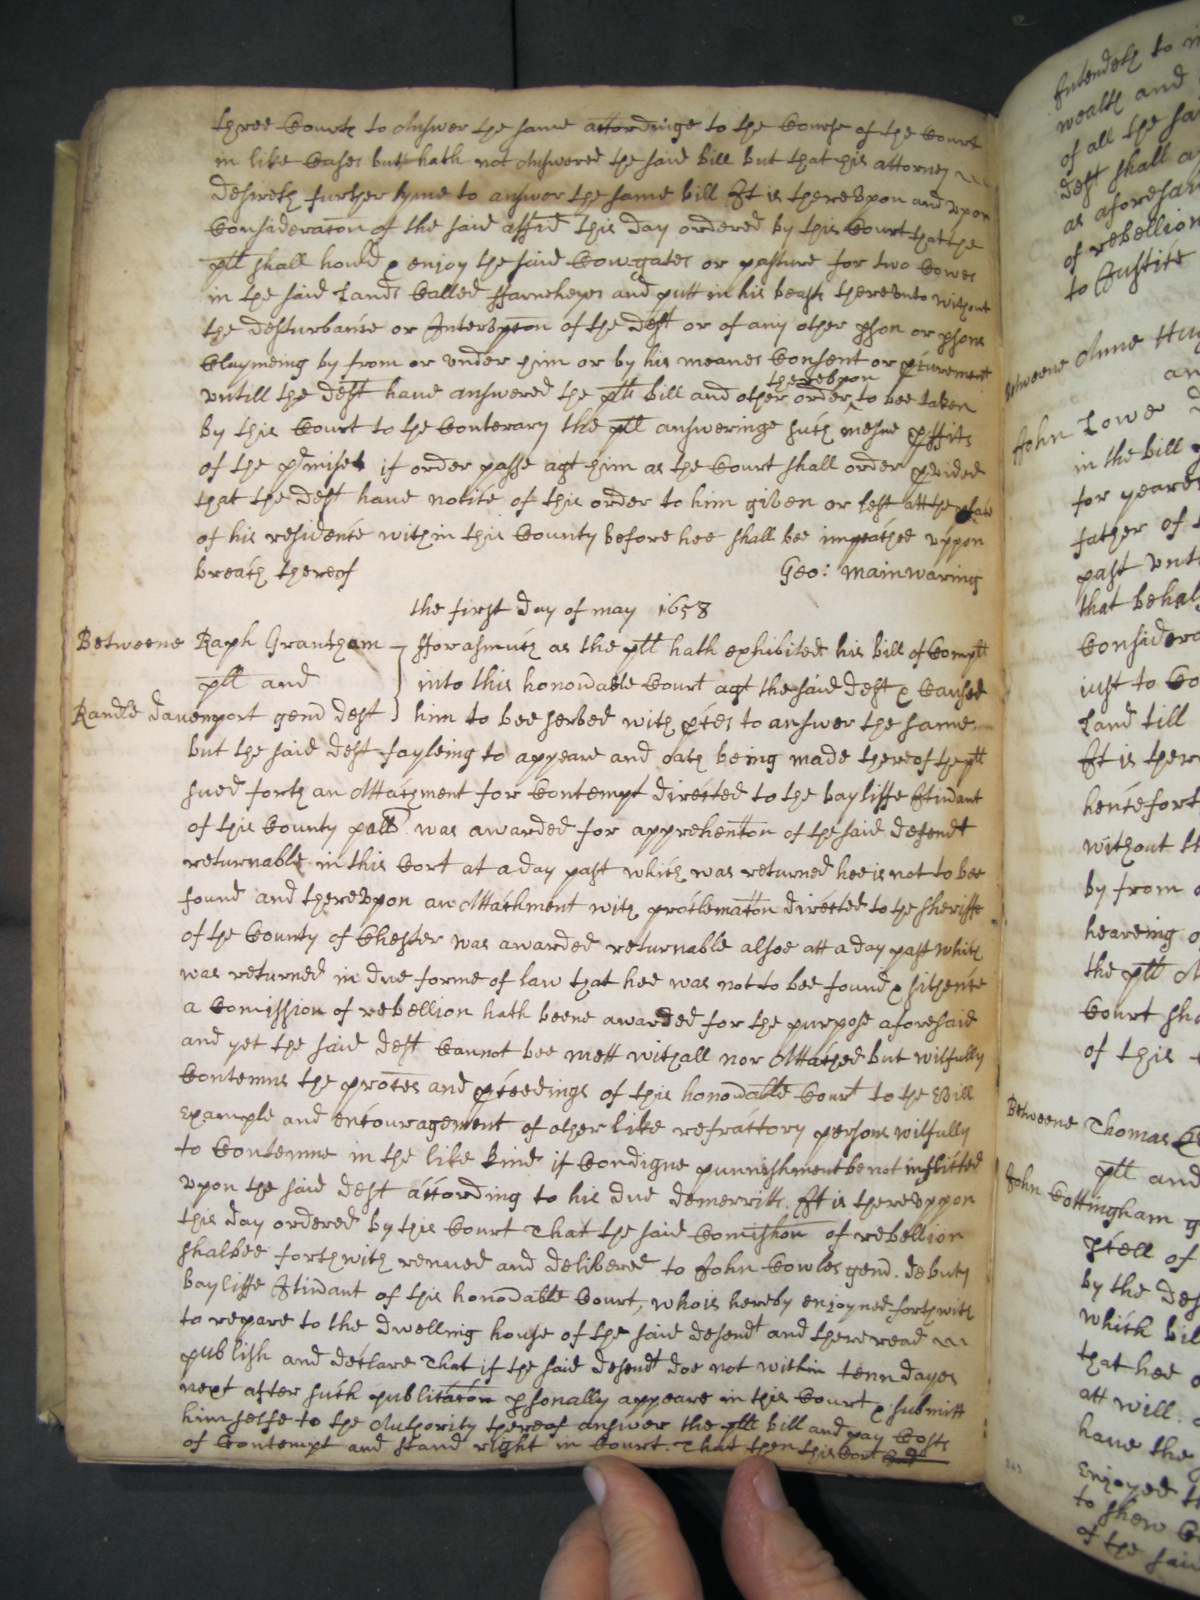 three Courts to Answer the same accordinge to the Course of the Court
in like Cases but hath not Answered the said bill but that his attorney
desireth further tyme to answer the same bill It is thereupon and upon
Consideracon of the said affid this day ordered by this Court that the
plt shall hould & enjoy the said Cowgates or pasture for two Cowes
in the said Lands Called ffarneheyes and putt in his beasts thereunto without
the desturbance or Interupcon of the deft or of any other pson or psons
Claymeing by from or under him or by his meanes Consent or pcurement
untill the deft have answered the plts bill and other order thereupon to bee taken
by this Court to the Conterary the plt answeringe such mesne pffits
of the pmises if order passe agt him as the Court shall order pvided
that the deft have notice of this order to him given or left att the place
of his residence within this County before hee shall bee impeached uppon
breach thereof Geo: Mainwaring
the first day of may 1658
Betweene Raph Grantham
plt and
Randle Davenport gend deft
fforasmuch as the plt hath exhibited his bill of Complt
into this honorable Court agt the said deft & Caused
him to bee served with pces to answer the same
but the said deft fayleing to appeare and oath being made thereof the plt
sued forth an Attachment for Contempt directed to the bayliffe Itinant
of this County pall was awarded for apprehencon of the said defendt
returnable in this Cort at a day past which was returned hee is not to bee
found and thereupon an Attachment with proclemacon directed to the sheriffe
of the County of Chester was awarded returnable alsoe att a day past which
was returned in due forme of law that hee was not to bee found & sithence
a Comission of rebellion hath beene awarded for the purpose aforesaid
and yet the said deft Cannot bee mett withall nor Attached but wilfully
Contemns the proces and pceedings of this honorable Court to the Evill
Example and encouragement of other like refractory persons wilfully
to Contemne in the like kind if Condigne punnishment be not inflicted
upon the said deft according to his due demerritts. It is thereuppon
this day ordered by this Court That the said Comishon of rebellion
shalbee forthwith renued and delivered to John Cowles gend. debuty
bayliffe Itinant of this honorable Court, whois hereby enjoyned forthwith
to repare to the dwelling house of the said defendt and there read
publish and declare That if the said defendt doe not within tenn dayes
next after such publicacon psonally appeare in this Court & submitt
himselfe to the Authority thereof answer the plts bill and pay Costs
of Contempt and stand right in Court. That then this Cort
Intendeth to
wealth and
of all the
deft shall
as aforesaid
of rebellion
to Justice
Betweene Anne
an
John Lowe
in the bill
for yeares
father of
past unt
that behal
Considera
iust to Co
Land till
It is ther
hencefort
without
by from
heareing
the plt
Court sha
of this
Betweene Thomas
plt and
John Cottingham
of
by the def
which bil
that hee
att will.
have the
Enjoyed
to shew
of the said